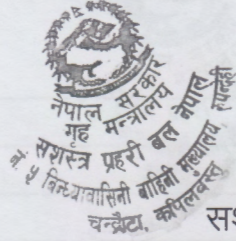 नेपाल सरकार
गृह मन्त्रालय
सशस्त्र प्रहरी बल नेपाल
नं. ५ बिन्ध्यावासिनी बाहिनी मुख्यालय, रुपन्देही
चन्द्रौटा, कपिलवस्तु